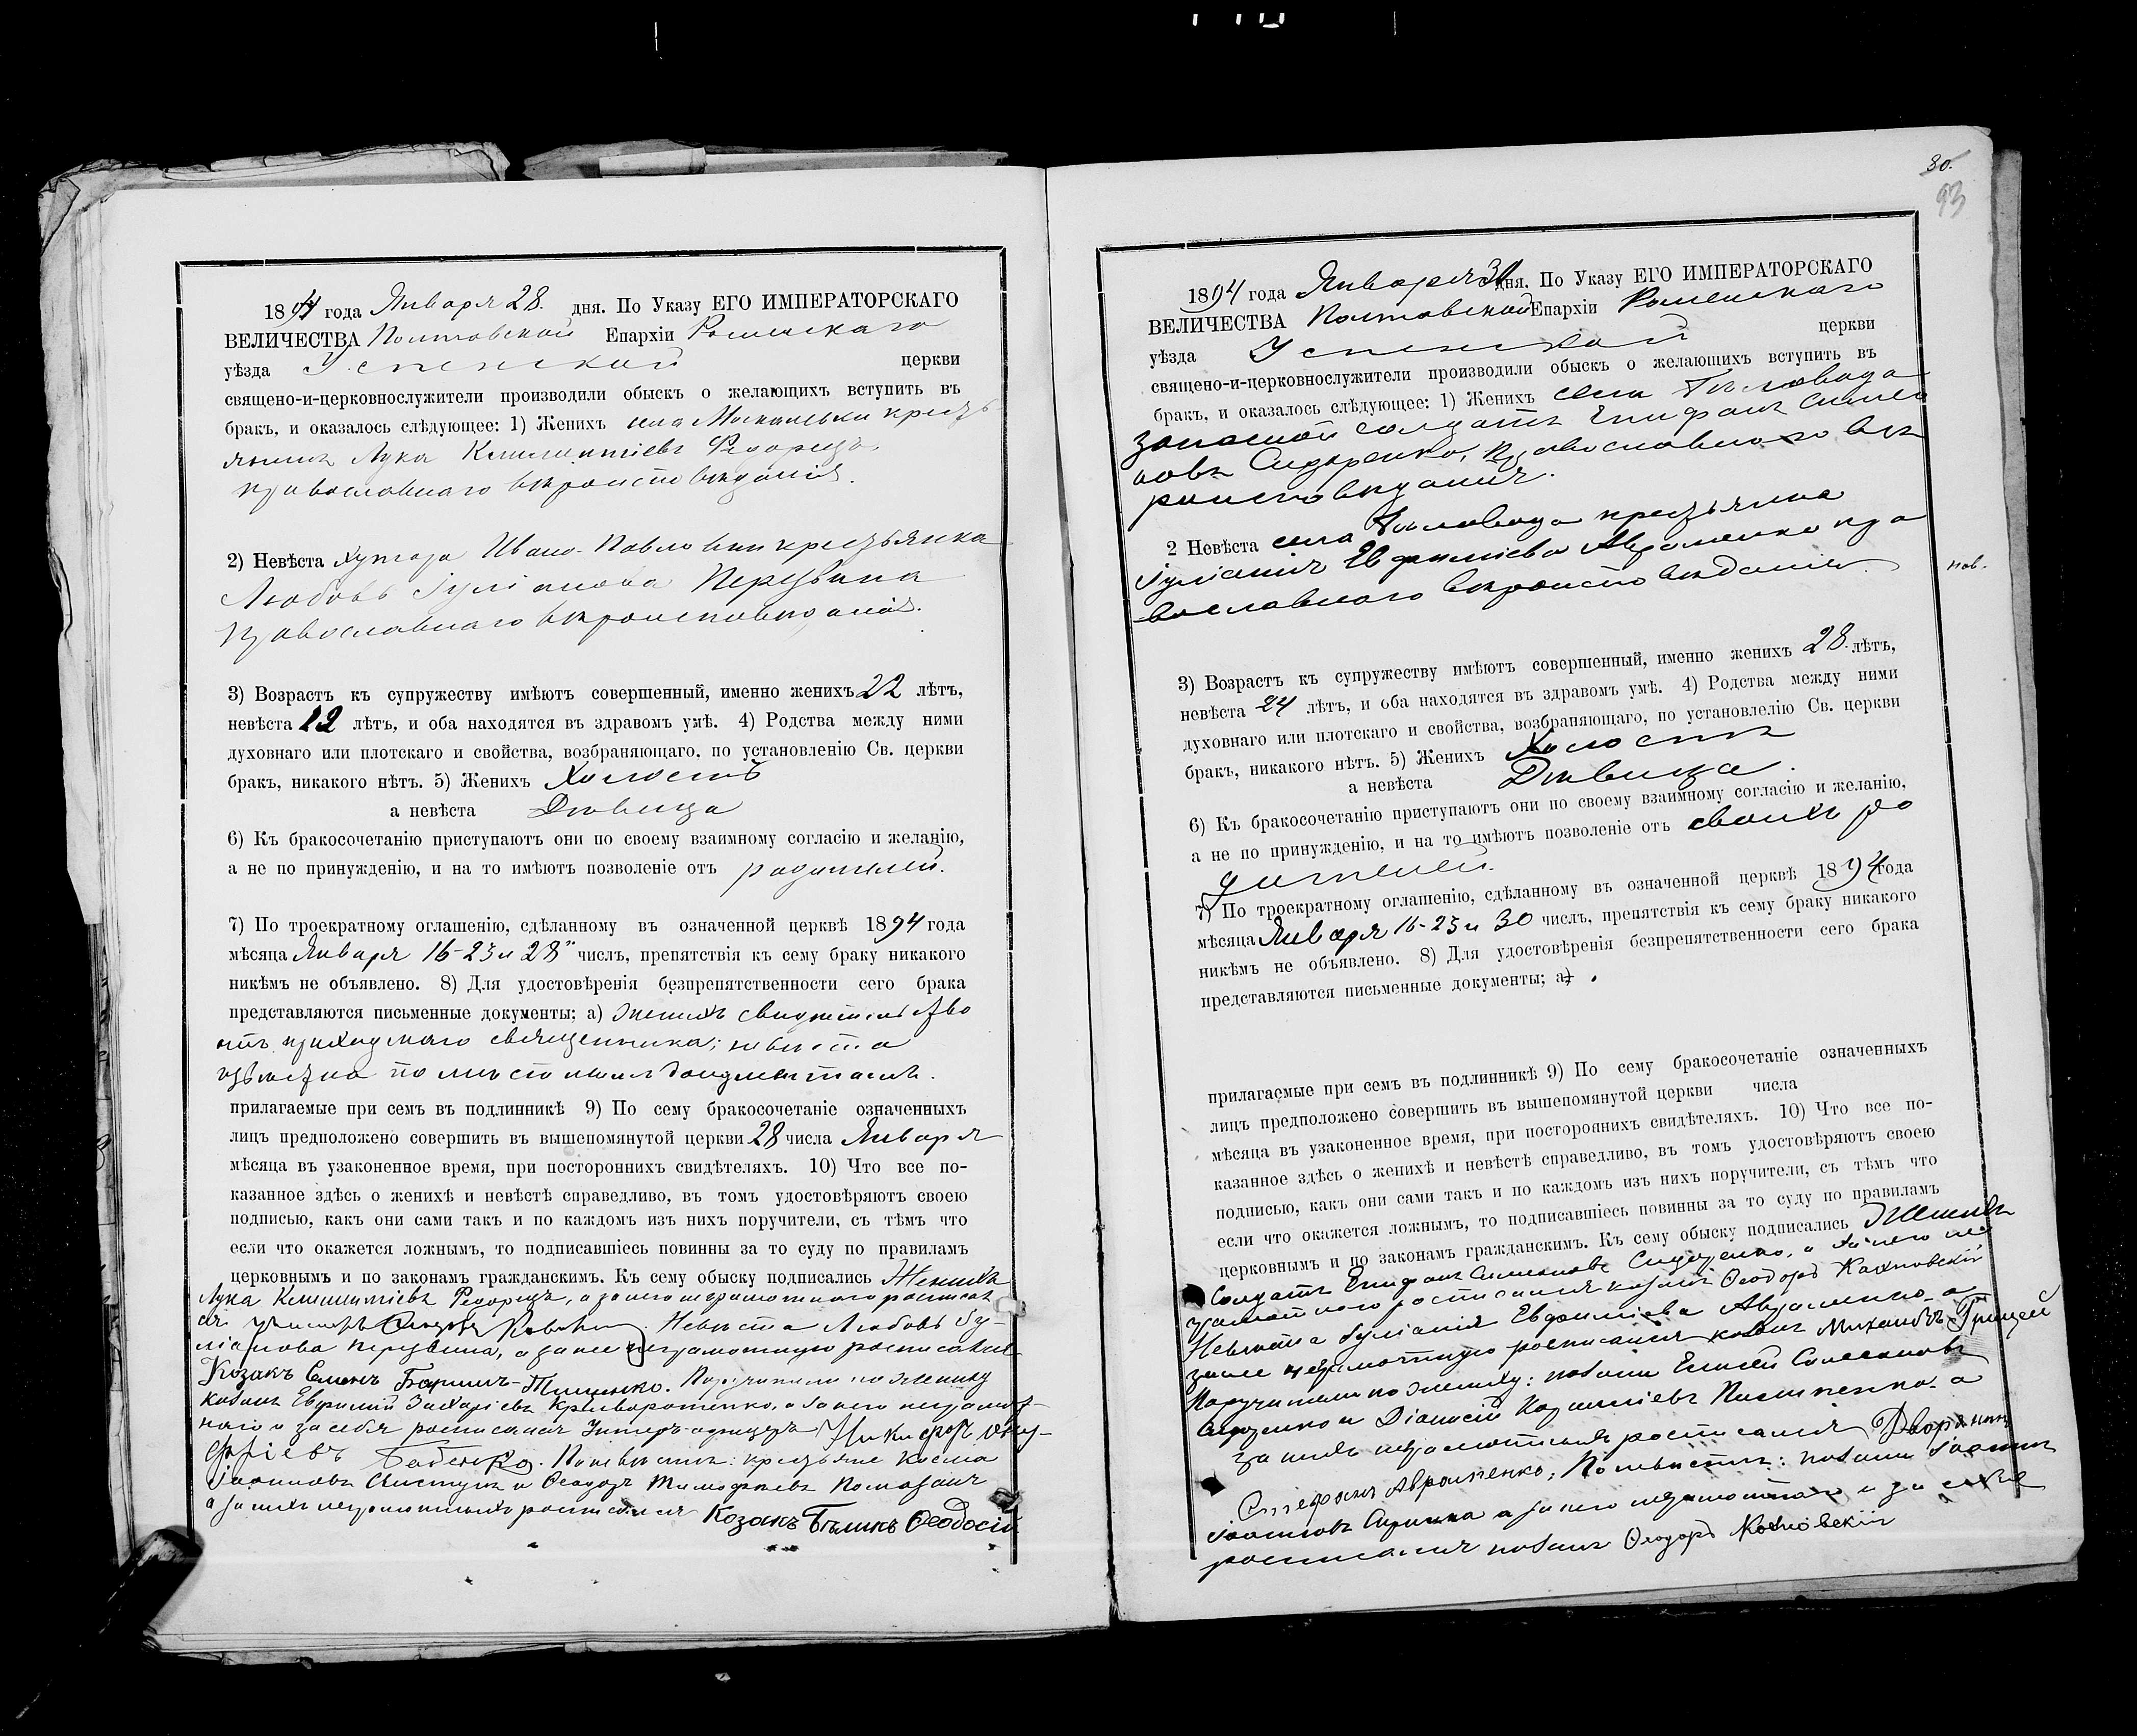 1894 года Января 28. дня. По Указу ЕГО ИМПЕРАТОРСКАГО
ВЕЛИЧЕСТВА Полтавской Епархіи Роменскаго
уѣзда Успенской церкви
священо-и-церковнослужители производили обыскъ о желающихъ вступить въ
бракъ, и оказалось слѣдующее: 1) Женихъ села Москалевки кресть
янинъ Лука Климентіевъ Федорецъ,
православнаго вѣроисповѣданія.
2) Невѣста хутора Ивано-Павловки крестьянка
Любовь Іуліанова Перервина
православнаго вѣроисповѣданія.
3) Возрастъ къ супружеству имѣютъ совершенный, именно женихъ 22 лѣтъ,
невѣста лѣтъ, и оба находятся въ здравомъ умѣ. 4) Родства между ними
духовнаго или плотскаго и свойства, возбраняющаго, по установленію Св. церкви
бракъ, никакого нѣтъ. 5) Женихъ Холостъ
а невѣста Дѣвица
6) Къ бракосочетанію приступаютъ они по своему взаимному согласію и желанію,
а не по принужденію, и на то имѣютъ позволеніе отъ родителей.
7) По троекратному оглашенію, сдѣланному въ означенной церквѣ 1894 года
мѣсяца Января 16-23 и 28 числъ, препятствія къ сему браку никакого
никѣмъ не объявлено. 8) Для удостовѣренія безпрепятственности сего брака
представляются письменные документы; а) Женихъ свидетельство
отъ приходскаго священника; невѣста
извѣстна по мѣстнымъ документамъ.
прилагаемые при семъ въ подлинникѣ 9) По сему бракосочетаніе означенныхъ
лицъ предположено совершить въ вышепомянутой церкви 28 числа Января
мѣсяца въ узаконенное время, при постороннихъ свидѣтеляхъ. 10) Что все по-
казанное здѣсь о женихѣ и невѣстѣ справедливо, въ томъ удостовѣряютъ своею
подписью, какъ они сами такъ и по каждомъ изъ нихъ поручители, съ тѣмъ что
если что окажется ложнымъ, то подписавшіесь повинны за то суду по правиламъ
церковнымъ и по законамъ гражданскимъ. Къ сему обыску подписались Женихъ
Лука Климентіевъ Федорецъ, а за него неграмотного росписал
ся учитель Невѣста Любовь Іу-
ліанова Перервина, а за нее неграмотную росписался
Козакъ Семенъ Тищенко. Поручители по жениху
козакъ Евфимій Захаріевъ Криворотенко, а за него неграмот-
наго и за себя росписался Унтеръ-офицеръ Никифоръ Ону-
фріевъ Бабенко. По невѣстѣ: крестьяне Косма
Іоанновъ и Ѳеодоръ Тимофѣевъ
а за нихъ неграмотныхъ росписался Козакъ Бѣликъ Ѳеодосій
80.
93
1894 года Января 30 дня. По Указу ЕГО ИМПЕРАТОРСКАГО
ВЕЛИЧЕСТВА Полтавской Епархіи Роменскаго
уѣзда Успенской церкви
священо-и-церковнослужители производили обыскъ о желающихъ вступить въ
бракъ, и оказалось слѣдующее: 1) Женихъ села Бѣловода
запасной солдатъ Епифанъ Симео
новъ Сидоренко, православнаго вѣ
роисповѣданія.
2 Невѣста села Бѣловода крестьянка
Іуліанія Евфиміева Авраменко пра
вославнаго вѣроисповѣданія.
3) Возрастъ къ супружеству имѣютъ совершенный, именно женихъ 28 лѣтъ,
невѣста 24 лѣтъ, и оба находятся въ здравомъ умѣ. 4) Родства между ними
духовнаго или плотскаго и свойства, возбраняющаго, по установлелію Св. церкви
бракъ, никакого нѣтъ. 5) Женихъ Холостъ
а невѣста Дѣвица.
6) Къ бракосочетанію приступаютъ они по своему взаимному согласію и желанію,
а не по принужденію, и на то имѣютъ позволеніе отъ своихъ ро
дителей.
7) По троекратному оглашенію, сдѣланному въ означенной церквѣ 1894 года
мѣсяца Января 16-23 и 30 числъ, препятствія къ сему браку никакого
никѣмъ не объявлено. 8) Для удостовѣренія безпрепятственности сего брака
представляются письменные документы; а)
прилагаемые при семъ въ подлинникѣ 9) По сему бракосочетаніе означенныхъ
лицъ предположено совершить въ вышепомянутой церкви числа
мѣсяца въ узаконенное время, при постороннихъ свидѣтеляхъ. 10) Что все по-
казанное здѣсь о женихѣ и невѣстѣ справедливо, въ томъ удостовѣряютъ своею
подписью, какъ они сами такъ и по каждомъ изъ нихъ поручители, съ тѣмъ что
если что окажется ложнымъ, то подписавшіесь повинны за то суду по правиламъ
церковнымъ и по законамъ гражданскимъ. Къ сему обыску подписались Женихъ
Солдатъ Епифанъ Симеоновъ Сидоренко, а за него не
грамотного росписался козакъ Ѳеодоръ Кахновскій
Невѣста Іуліанія Евфиміева Авраменко а
за нее неграмотную росписался козакъ Михаилъ Грицай
Поручители по жениху: козаки Елисей Симеоновъ
Сидоренко и Діонисій а
за нихъ неграмотныхъ росписался Дворянинъ
Стефанъ Авраменко, По невѣстѣ: козаки Іоаннъ
Іоанновъ а за него неграмотнаго и за себе
росписался козакъ Ѳеодоръ Кахновскій